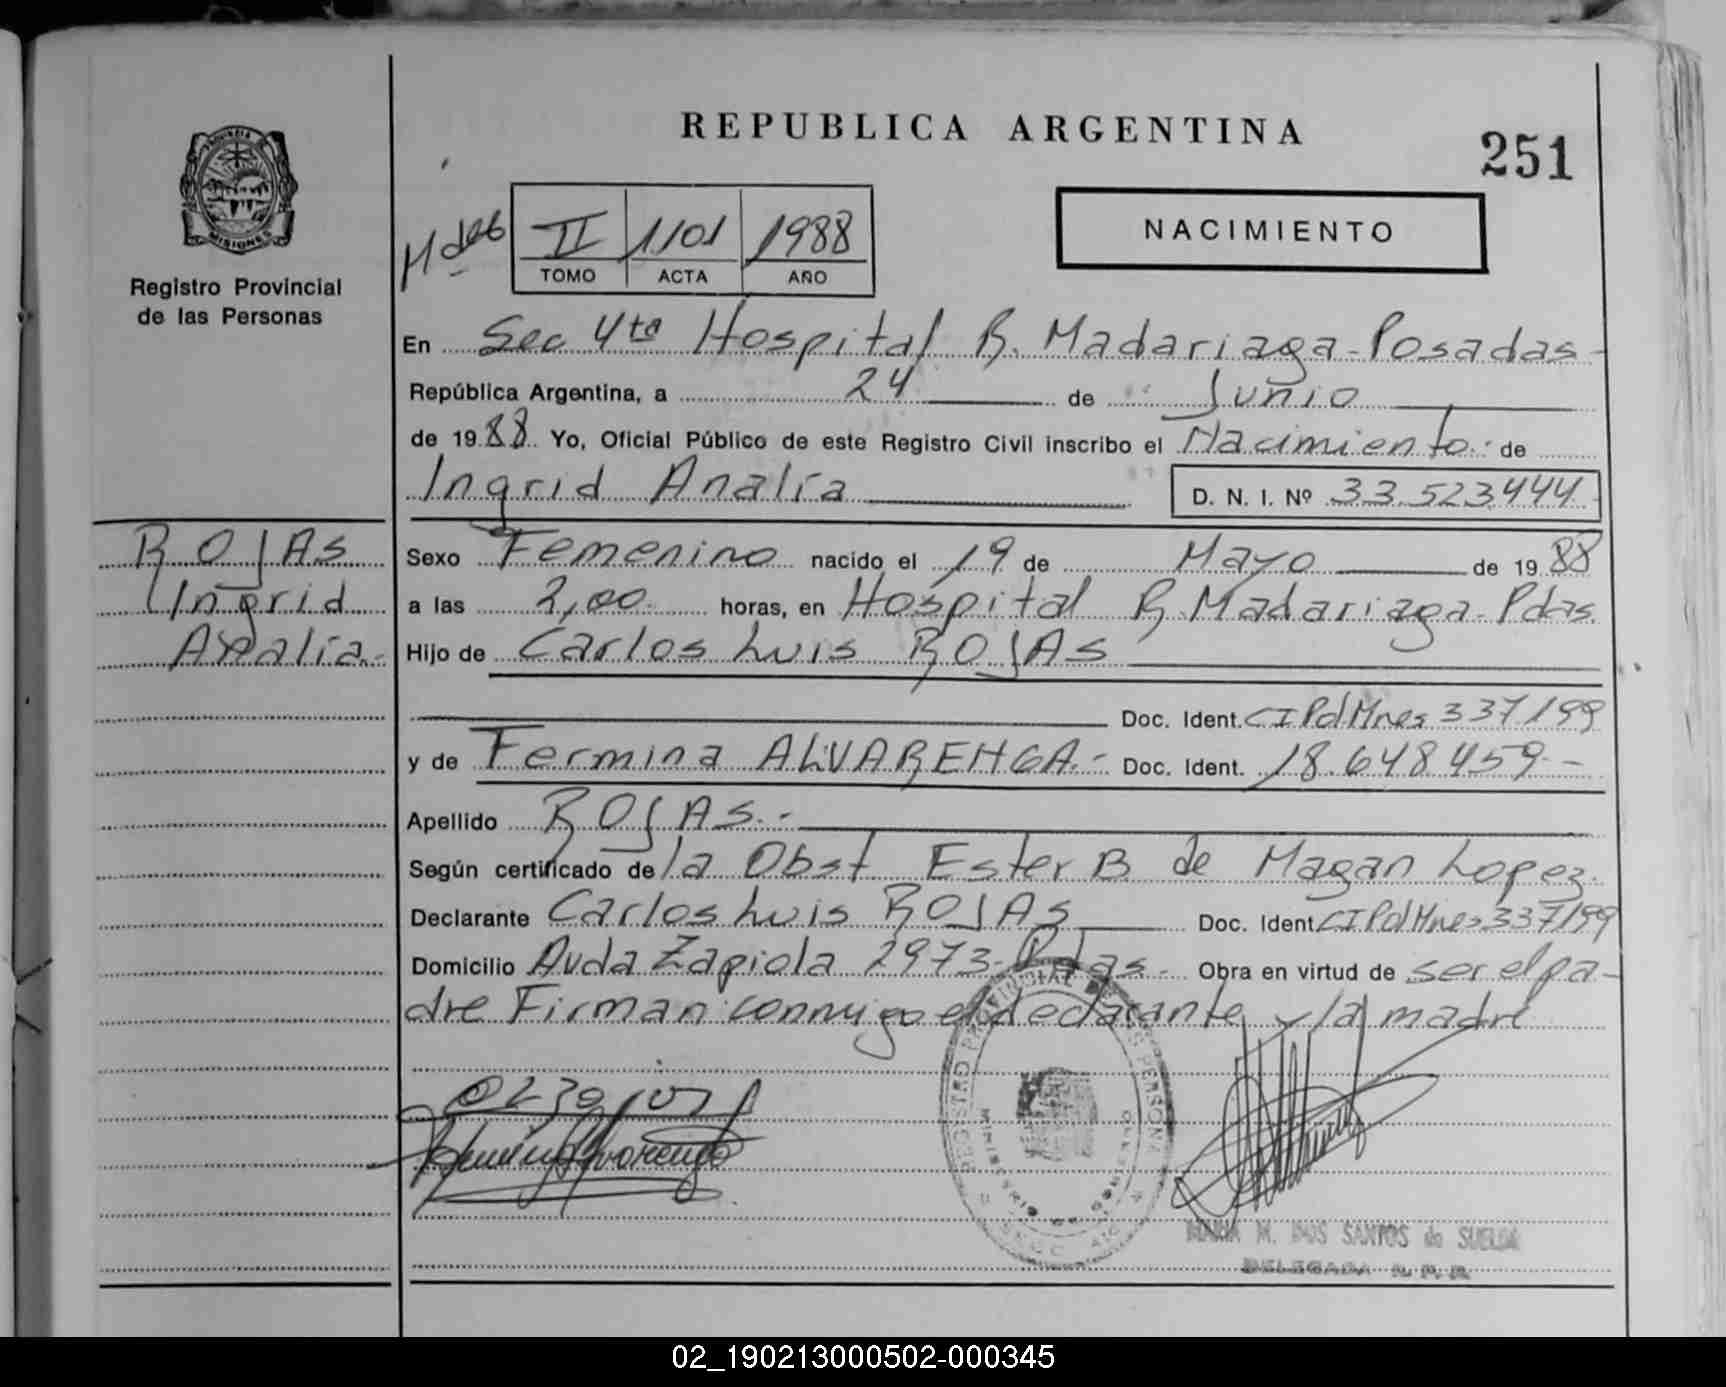 REPUBLICA ARGENTINA
251
PROVINCIA
MISIONES
Registro Provincial
de las Personas
II 1101 1988
TOMO ACTA AÑO
NACIMIENTO
En Sec 4ta Hospital R. Madariaga-Posadas-
República Argentina, a 24 de Junio
de 1988 Yo, Oficial Público de este Registro Civil inscribo el Nacimiento de
Ingrid Analía D. N. I. Nº 33.523.444
ROJAS
Ingrid
Analía.-
Sexo Femenino nacido el 19 de Mayo de 1988
a las 2,00 horas, en Hospital R. Madariaga-Pdas.
Hijo de Carlos Luis ROJAS
Doc. Ident. CI Pol Mnes 337199
y de Fermina ALVARENGA.- Doc. Ident. 18.648.459.-
Apellido ROJAS.-
Según certificado de la Obst Ester B. de Magan Lopez.
Declarante Carlos Luis ROJAS Doc. Ident CI Pol Mnes 337199
Domicilio Avda Zapiola 2973-Pdas.- Obra en virtud de ser el pa-
dre Firman conmigo el declarante y la madre
MARIA M. DOS SANTOS de SUELDA
DELEGADA R. P. P.
02_190213000502-000345